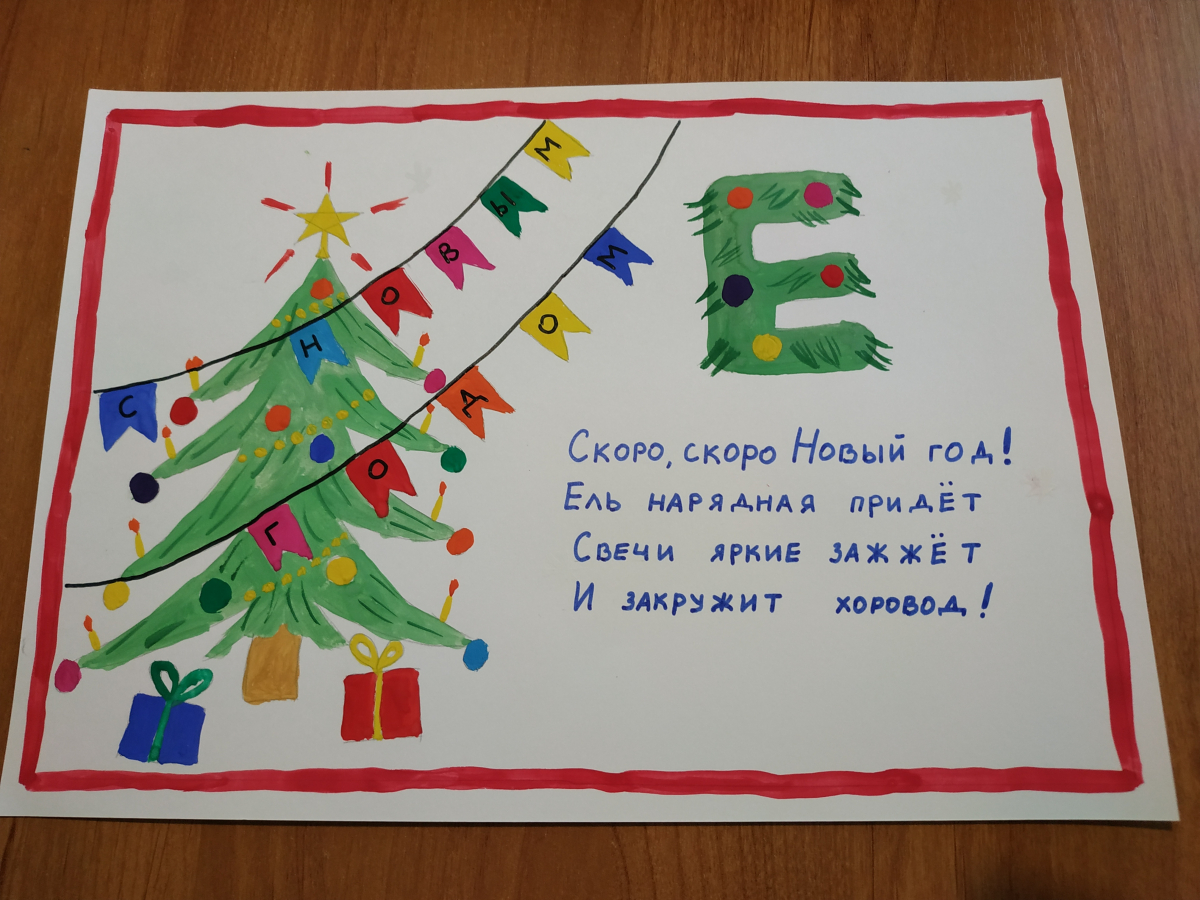 С НОВЫМ
ГОДОМ
Е
Скоро, скоро Новый год!
Ель нарядная придёт
Свечи яркие зажжёт
И закружит хоровод!